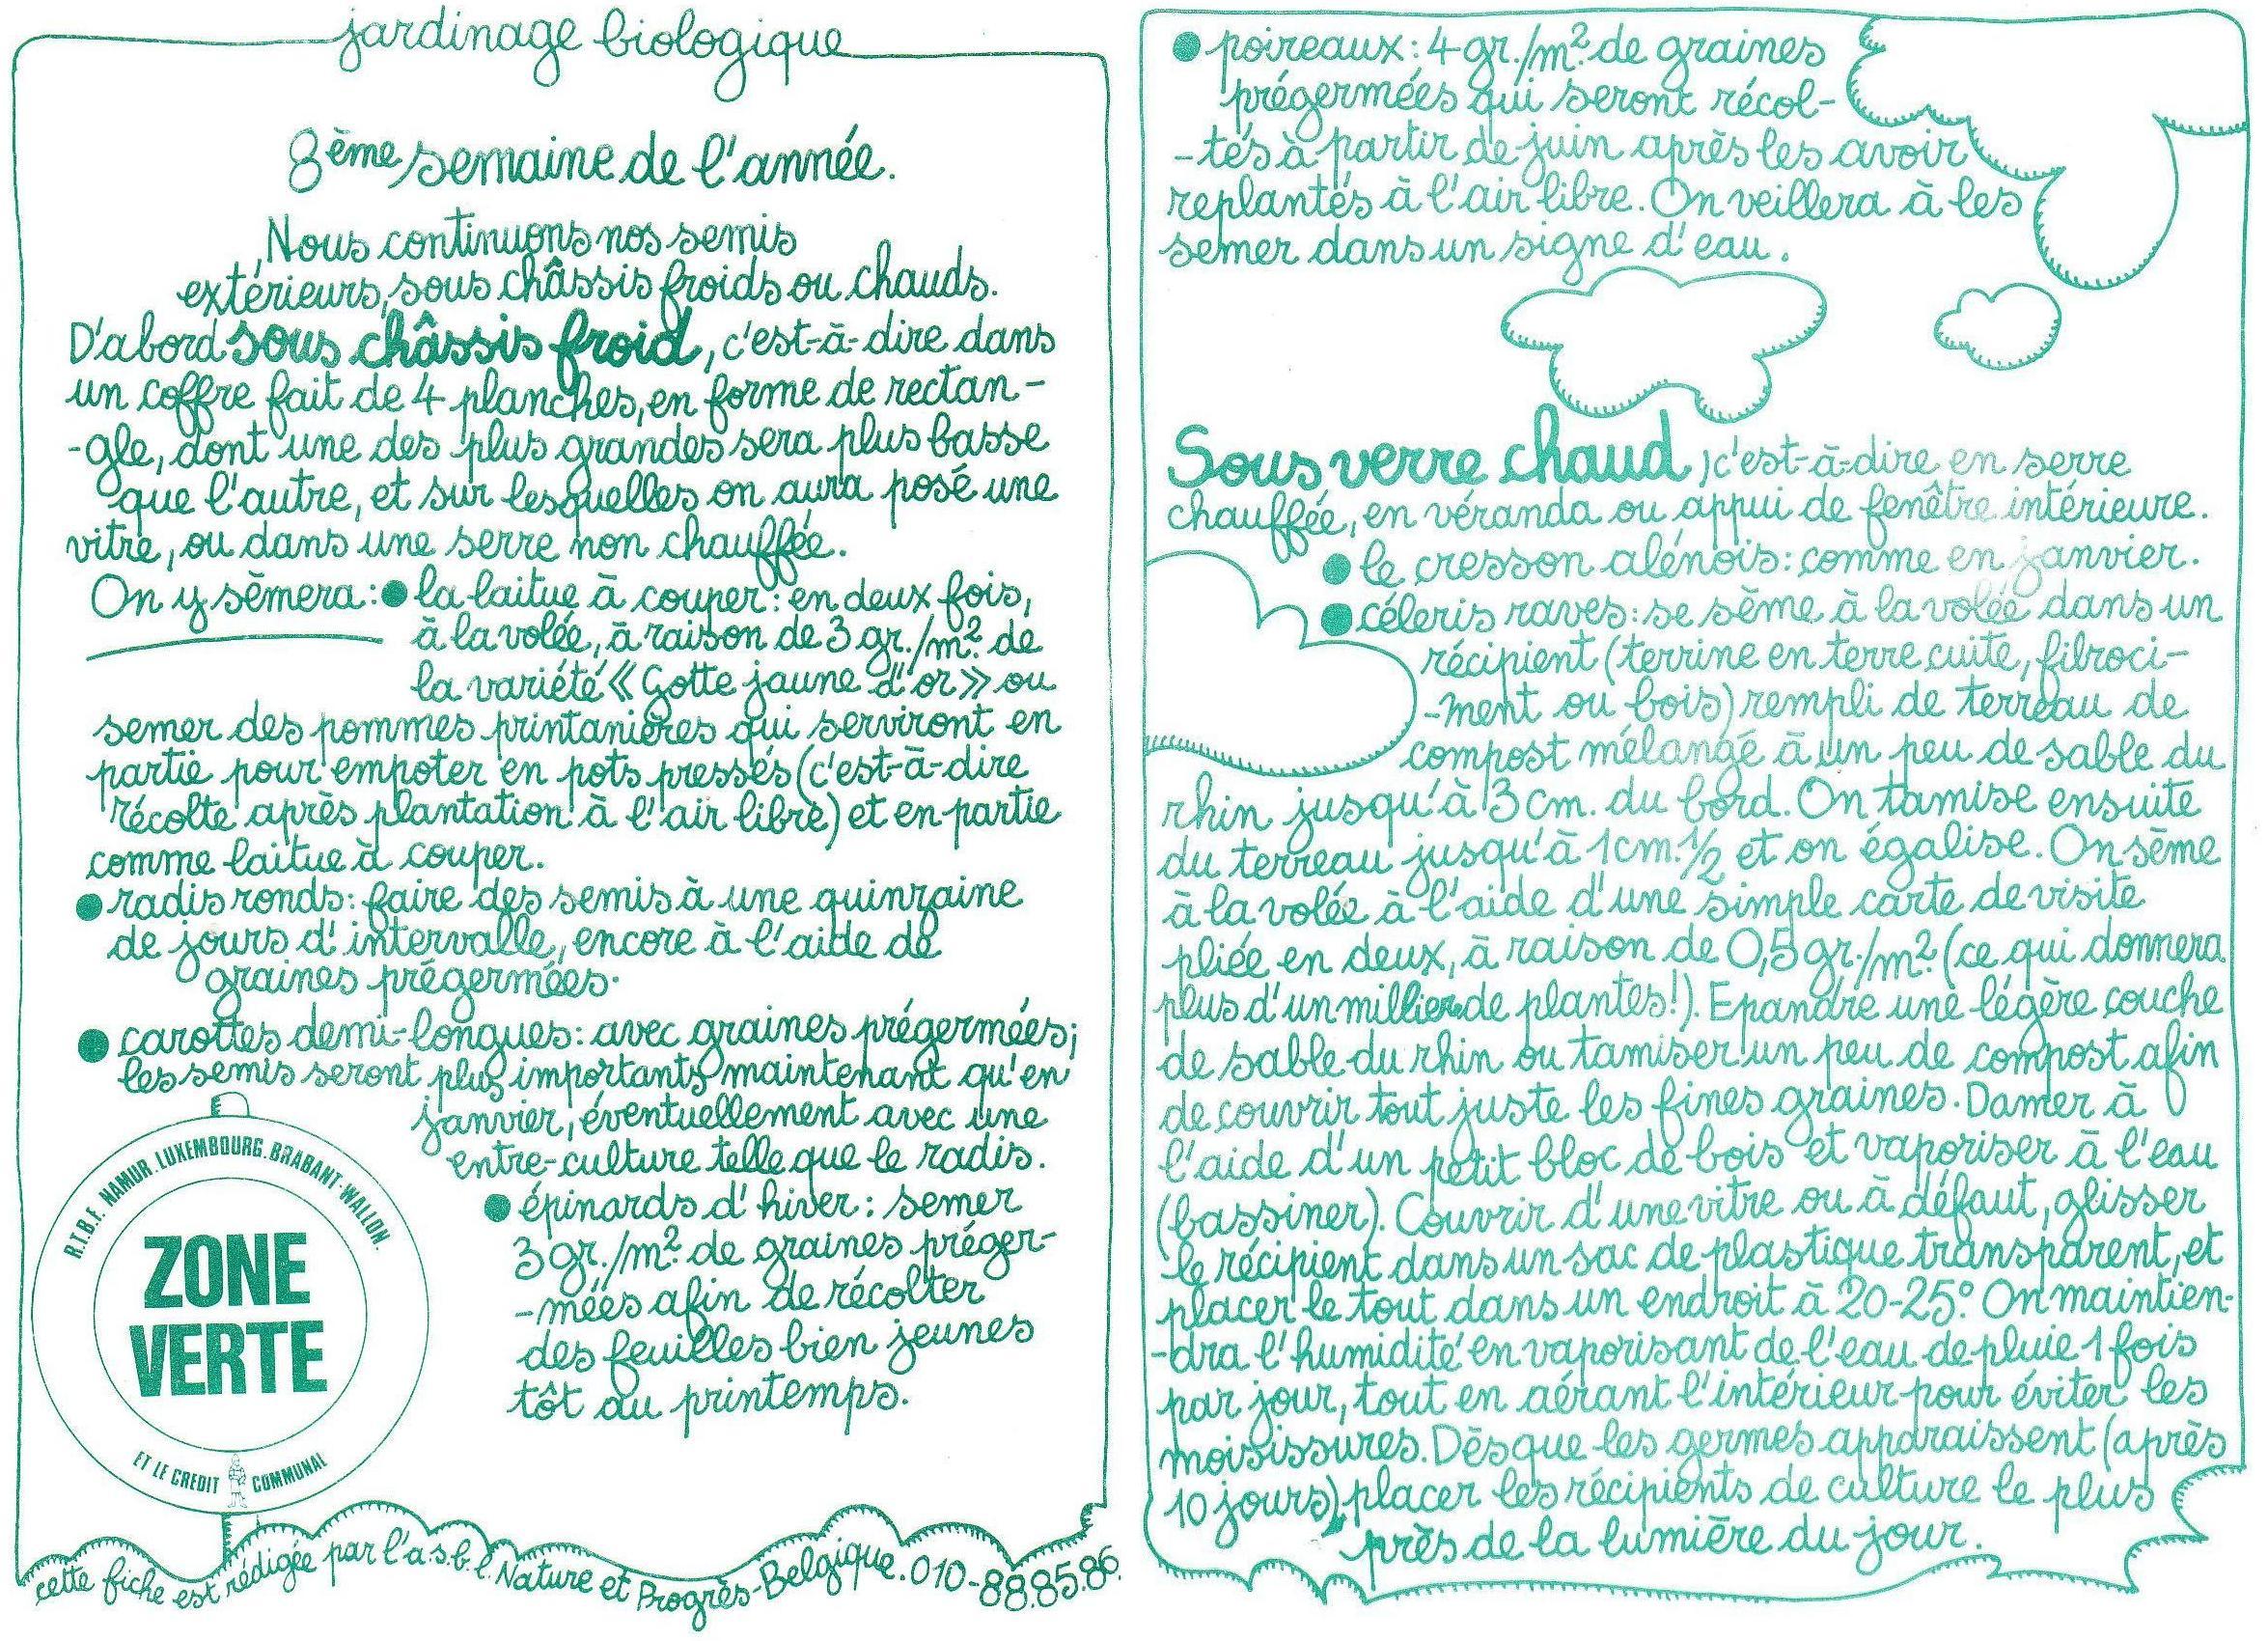 jardinage biologique
8ème semaine de l'année.
Nous continuons nos semis
extérieurs, sous châssis froids ou chauds.
D'abord sous châssis froid, c'est-à-dire dans
un coffre fait de 4 planches, en forme de rectan-
-gle, dont une des plus grandes sera plus basse
que l'autre, et sur lesquelles on aura posé une
vitre, ou dans une serre non chauffée.
On y sèmera: ● la laitue à couper: en deux fois,
à la volée, à raison de 3 gr./m². de
la variété « Gotte jaune d'or » ou
semer des pommes printanières qui serviront en
partie pour empoter en pots pressés (c'est-à-dire
récolte après plantation à l'air libre) et en partie
comme laitue à couper.
● radis ronds: faire des semis à une quinzaine
de jours d'intervalle, encore à l'aide de
graines prégermées.
● carottes demi-longues: avec graines prégermées;
les semis seront plus importants maintenant qu'en
janvier, éventuellement avec une
entre-culture telle que le radis.
● épinards d'hiver: semer
3 gr./m². de graines préger-
-mées afin de récolter
des feuilles bien jeunes
tôt au printemps.
R.T.B.F. NAMUR. LUXEMBOURG. BRABANT-WALLON.
ZONE
VERTE
ET LE CREDIT COMMUNAL
cette fiche est rédigée par l'a.s.b.l. Nature et Progrès-Belgique. 010-88.85.86.
● poireaux: 4 gr./m². de graines
prégermées qui seront récol-
-tés à partir de juin après les avoir
replantés à l'air libre. On veillera à les
semer dans un signe d'eau.
Sous verre chaud, c'est-à-dire en serre
chauffée, en véranda ou appui de fenêtre intérieure.
● le cresson alénois: comme en janvier.
● céleris raves: se sème à la volée dans un
récipient (terrine en terre cuite, fibroci-
-ment ou bois) rempli de terreau de
compost mélangé à un peu de sable du
rhin jusqu'à 3 cm. du bord. On tamise ensuite
du terreau jusqu'à 1 cm. ½ et on égalise. On sème
à la volée à l'aide d'une simple carte de visite
pliée en deux, à raison de 0,5 gr./m². (ce qui donnera
plus d'un millier de plantes!). Epandre une légère couche
de sable du rhin ou tamiser un peu de compost afin
de couvrir tout juste les fines graines. Damer à
l'aide d'un petit bloc de bois et vaporiser à l'eau
(bassiner). Couvrir d'une vitre ou à défaut, glisser
le récipient dans un sac de plastique transparent, et
placer le tout dans un endroit à 20-25°. On maintien-
-dra l'humidité en vaporisant de l'eau de pluie 1 fois
par jour, tout en aérant l'intérieur pour éviter les
moisissures. Dès que les germes apparaissent (après
10 jours), placer les récipients de culture le plus
près de la lumière du jour.